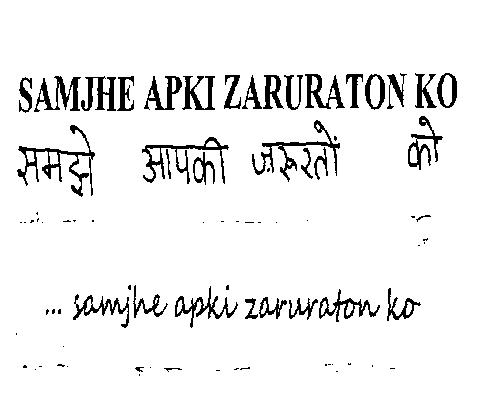 SAMJHE APKI ZARURATON KO
समझे आपकी ज़रूरतों को
... samjhe apki zaruraton ko